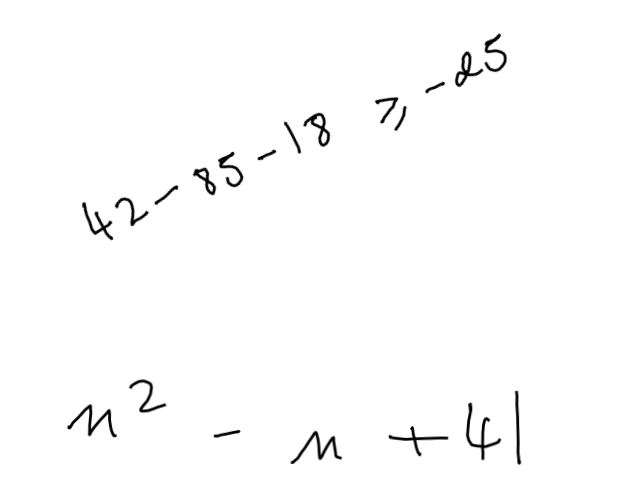 42 - 85 - 18 ⩾ -25
n² - n + 41